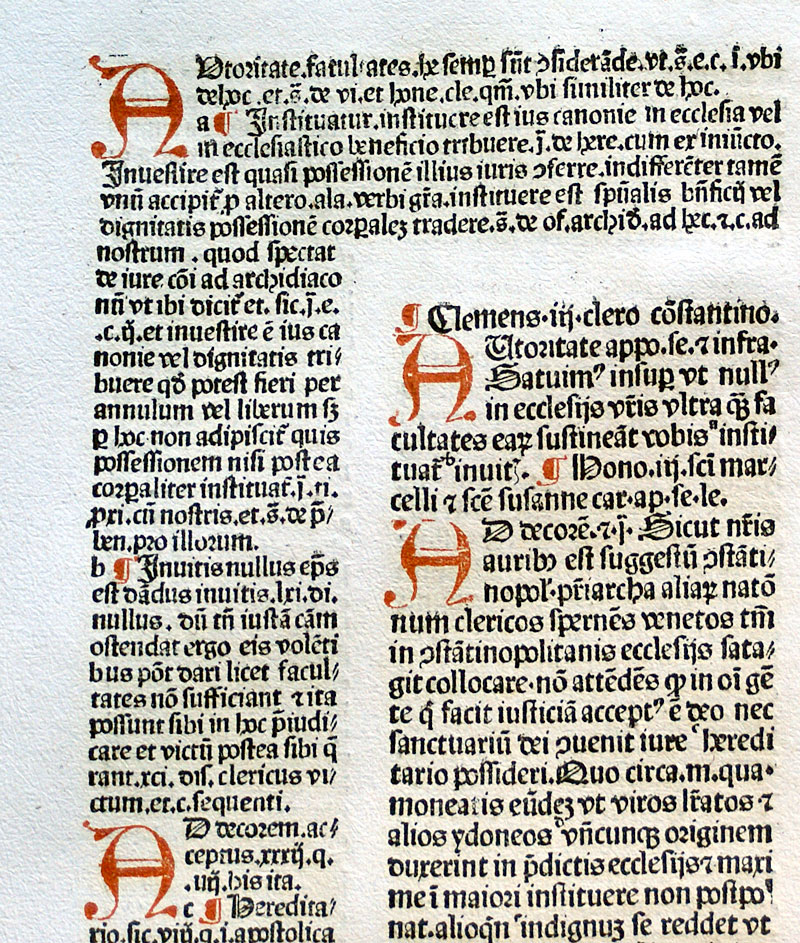 AUtoritate.facultates.he semꝑ sūt ɔſiderāde.vt.s̄.e.c.ī.vbi
dehoc.et.s̄.de vi.et hone.cle.qm̄.vbi similiter de hoc.
a ¶ Instituatur.instituere est ius canonie in ecclesia vel
in ecclesiastico beneficio tribuere.j̄.de here.cum ex iniūcto.
Inuestire est quasi possessionē illius iuris ɔferre.indifferēter tamē
vnū accipit̄ ꝓ altero.ala.verbi gr̄a.instituere est spūalis bn̄ficij vel
dignitatis possessionē corꝑaleꝫ tradere.s̄.de of.archid̄.ad hec.⁊.c.ad
nostrum.quod spectat
de iure cōi ad archidiaco
nū vt ibi dicit̄ et.sic.j̄.e.
.c.ij.et inuestire ē ius ca
nonie vel dignitatis tri/
buere qd̄ potest fieri per
annulum vel librum sꝫ
ꝑ hoc non adipiscit̄ quis
possessionem nisi postea
corꝑaliter instituat̄.j̄.ti.
ꝓxi.cū nostris.et.s̄.de p̄/
ben.pro illorum.
b ¶ Inuitis nullus ep̄s
est dādus inuitis.lxi.di.
nullus. dū tn̄ iustā cām
ostendat ergo eis volēti
bus pōt dari licet facul/
tates nō sufficiant ⁊ ita
possunt sibi in hoc p̄iudi/
care et victū postea sibi q̄
rant.xci.dis.clericus vi/
ctum.et.c.sequenti.
AD decorem.ac/
ceptus.xxxij.q.
.iiij.his ita.
c ¶ Heredita/
rio.sic.viij.q.i.apostolica
¶ Clemens.iij.clero cōstantino.
AUtoritate appo.se.⁊ infra.
Satuim⁹ insuꝑ vt null⁹
in ecclesijs vr̄is vltra qꝫ fa
cultates eaꝝ sustineāt vobis ᵃinsti/
tuat̄ ᵇinuit⁹. ¶ Hono.iij.sc̄i mar/
celli ⁊ sc̄e susanne car.ap.se.le.
AD decorē.⁊.j̄. Sicut nr̄is
auribꝰ est suggestū ɔstāti/
nopol'.pr̄iarcha aliaꝝ natō
num clericos spernēs venetos tm̄
in ɔstātinopolitanis ecclesijs sata/
git collocare.nō attēdēs ꝙ in oī gē
te q̄ facit iusticiā accept⁹ ē deo nec
sanctuariū dei ɔuenit iure ᶜheredi
tario possideri.Quo circa.m.qua.
moneatis eūdeꝫ vt viros lr̄atos ⁊
alios ydoneos ᵈvn̄cunqꝫ originem
duxerint in p̄dictis ecclesijs ⁊ maxi
me ī maiori instituere non postpo/
nat.alioqn̄ ᵉindignuꝫ se reddet vt